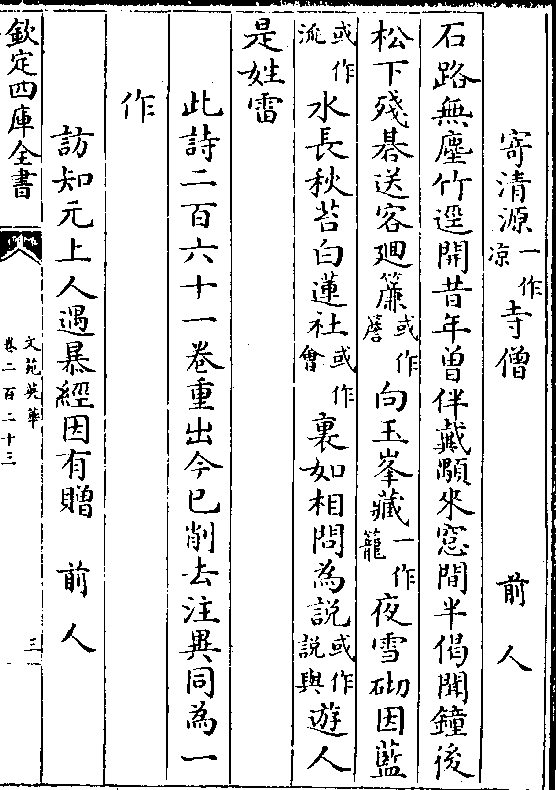 寄清源一作凉寺僧　前人
石路無塵竹逕開昔年曾伴戴顒來窓間半偈聞鐘後
松下殘棊送客廻簾或作簷向玉峯藏一作籠夜雪砌因藍
或作流水長秋苔白蓮社或作會裏如相問為説或作説與遊人
是姓雷
此詩二百六十一卷重出今已削去注異同為一
作
訪知元上人遇暴經因有贈　前人
欽定四庫全書
文苑英華
卷二百二十三
三